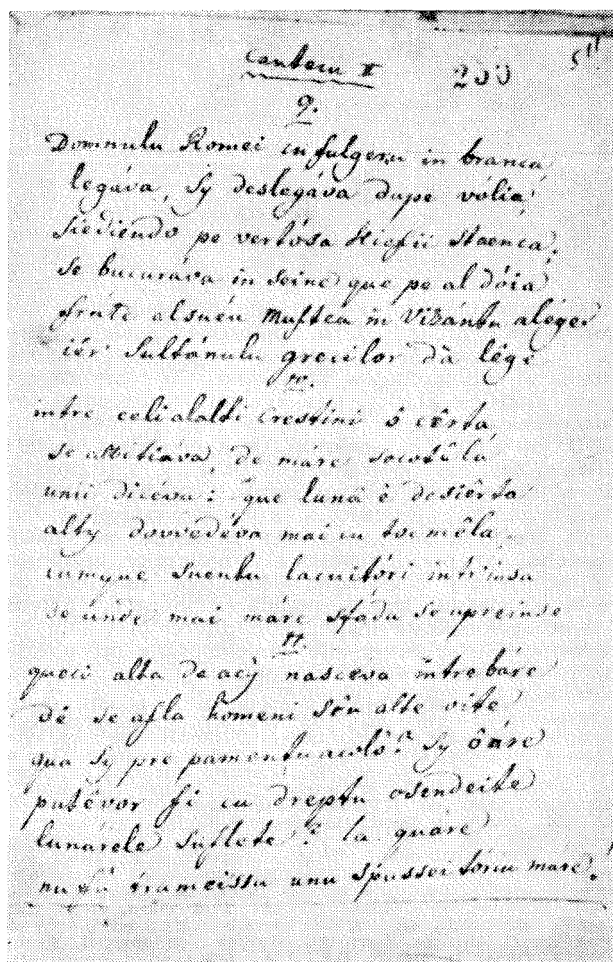 Cantecu II 200 511
9.
Domnulu Romei cu fulgeru in branca
legáva, sy deslegáva dupe vólia
siediendo pe vertósa Kiefii staenca,
se bucuráva in seine que pe al dóia
fráte alsuéu in Vizántu alége
iér Sultánulu grecilor dà lége
10.
intre celialalti crestini ô cêrta
se de máre socotêlà
unii dicéva: que luna è desiêrta
alty dovedéva mai cu tocmêla,
cumque suentu lacuitóri intrinsa
de unde mai máre sfada se apreinse
11.
queci alta de acy nasceva intrebáre
dê se afla homeni séu alte vite
qua sy pre pamentu acolô? sy ôáre
putévor fi cu dreptu osendeite
lunárele suflete? la quáre
nu tramcissu unu máre!